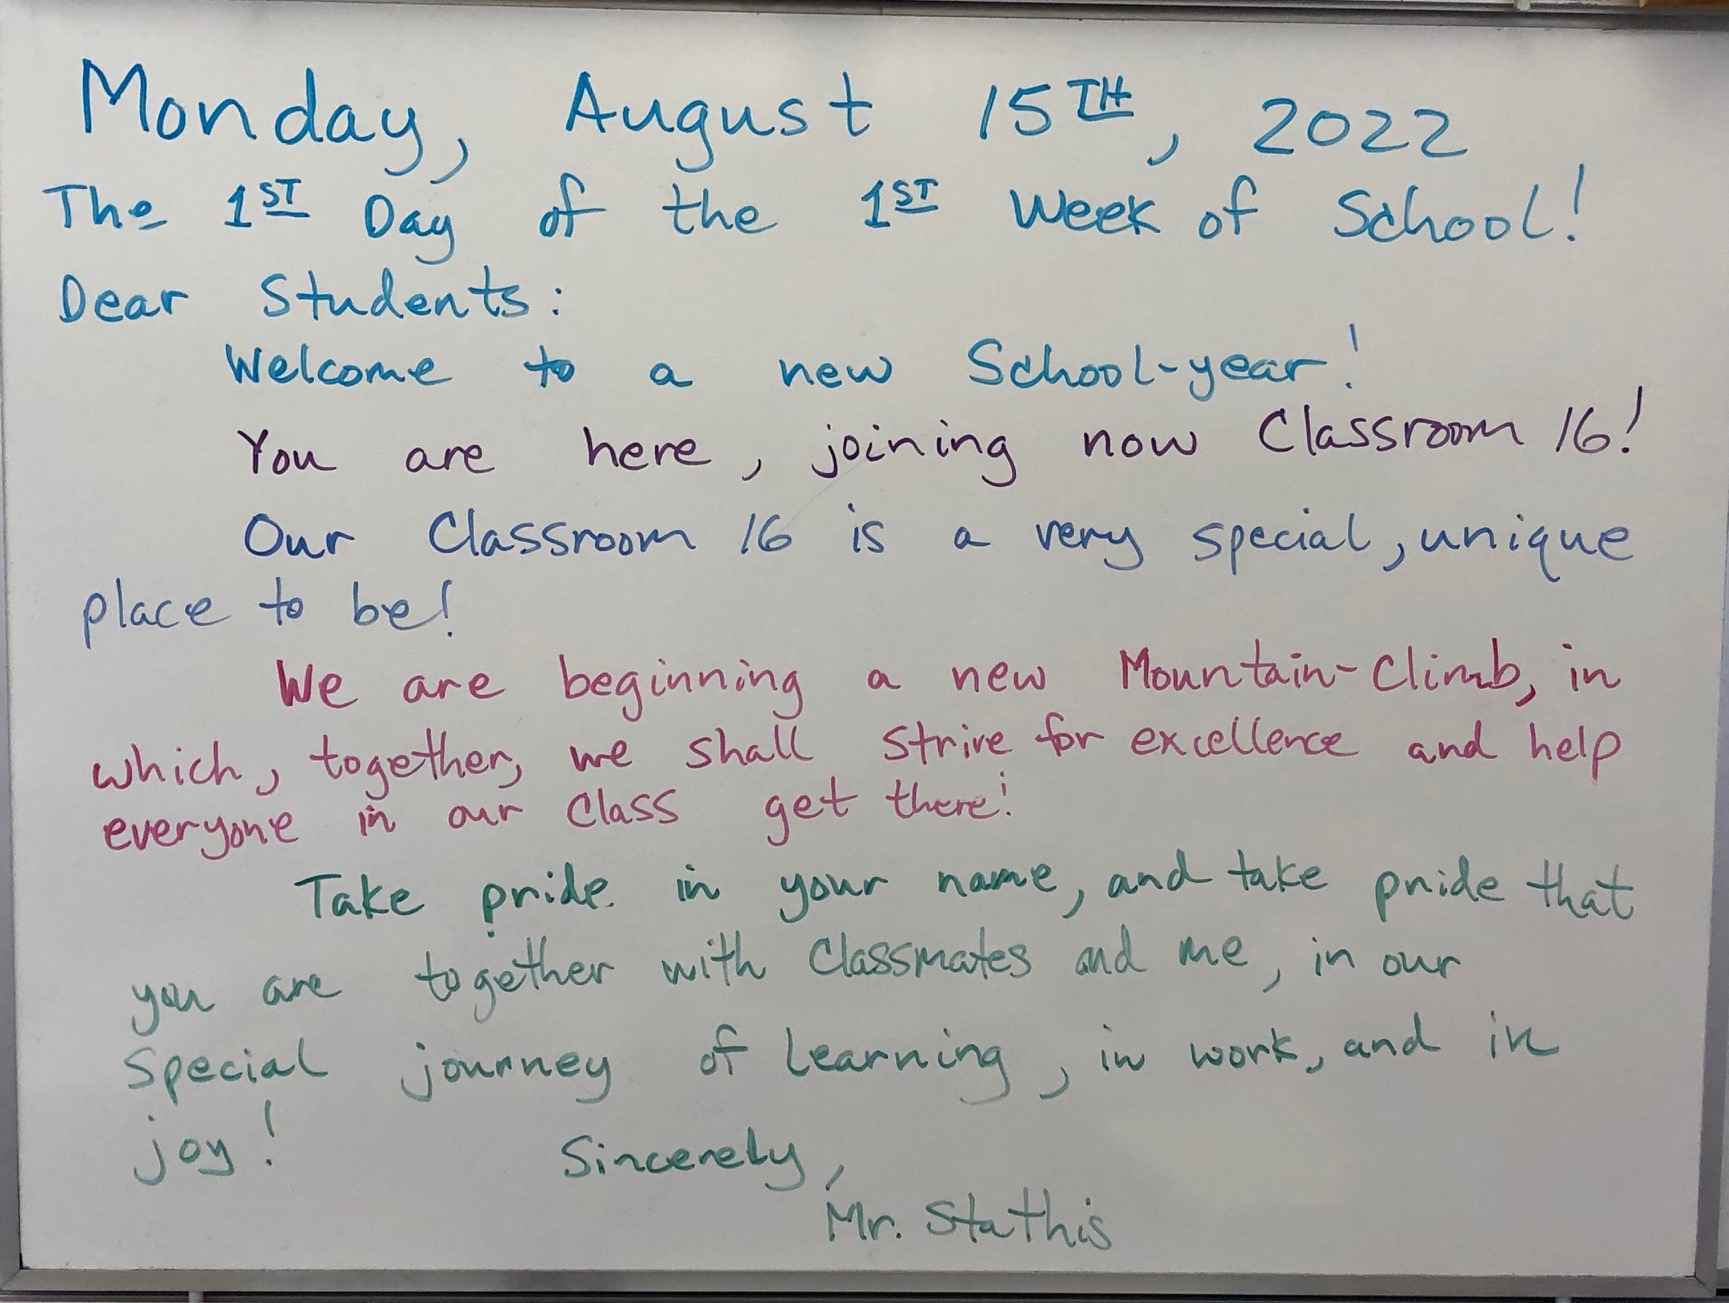 Monday, August 15TH, 2022
The 1ST Day of the 1ST Week of School!
Dear Students:
Welcome to a new School-year!
You are here, joining now Classroom 16!
Our Classroom 16 is a very special, unique
place to be!
We are beginning a new Mountain-Climb, in
which, together, we shall strive for excellence and help
everyone in our Class get there!
Take pride in your name, and take pride that
you are together with Classmates and me, in our
Special journey of Learning, in work, and in
joy!
Sincerely,
Mr. Stathis